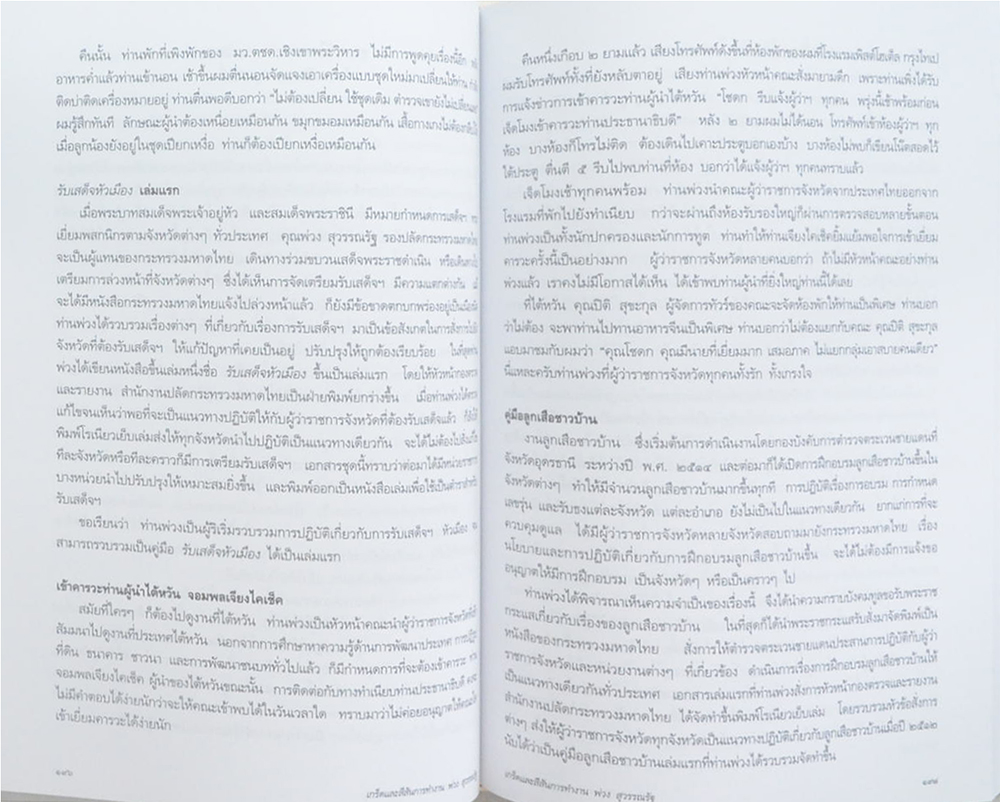 คืนนั้น ท่านพักที่เพิงพักของ มว.ตชด.เชิงเขาพระวิหาร ไม่มีการพูดคุยเรื่องนี้อีก
อาหารค่ำแล้วท่านเข้านอน เช้าขึ้นผมตื่นนอนจัดแจงเอาเครื่องแบบชุดใหม่มาเปลี่ยนให้ท่าน
ติดบ่าติดเครื่องหมายอยู่ ท่านตื่นพอดีบอกว่า "ไม่ต้องเปลี่ยน ใช้ชุดเดิม ตำรวจเขายังไม่เปลี่ยนเลย"
ผมรู้สึกทันที ลักษณะผู้นำต้องเหนื่อยเหมือนกัน ขมุกขมอมเหมือนกัน เสื้อกางเกงไม่ต้อง
เมื่อลูกน้องยังอยู่ในชุดเปียกเหงื่อ ท่านก็ต้องเปียกเหงื่อเหมือนกัน
รับเสด็จหัวเมือง เล่มแรก
เมื่อพระบาทสมเด็จพระเจ้าอยู่หัว และสมเด็จพระราชินี มีหมายกำหนดการเสด็จฯ
เยี่ยมพสกนิกรตามจังหวัดต่างๆ ทั่วประเทศ คุณพ่วง สุวรรณรัฐ รองปลัดกระทรวงมหาดไทย
จะเป็นผู้แทนของกระทรวงมหาดไทย เดินทางร่วมขบวนเสด็จพระราชดำเนิน หรือเดินทางไป
เตรียมการล่วงหน้าที่จังหวัดต่างๆ ซึ่งได้เห็นการจัดเตรียมรับเสด็จฯ มีความแตกต่างกัน
จะได้มีหนังสือกระทรวงมหาดไทยแจ้งไปล่วงหน้าแล้ว ก็ยังมีข้อขาดตกบกพร่องอยู่เป็น
ท่านพ่วงได้รวบรวมเรื่องต่างๆ ที่เกี่ยวกับเรื่องการรับเสด็จฯ มาเป็นข้อสังเกตในการสั่งการไปยัง
จังหวัดที่ต้องรับเสด็จฯ ให้แก้ปัญหาที่เคยเป็นอยู่ ปรับปรุงให้ถูกต้องเรียบร้อย ในที่สุดท่าน
พ่วงได้เขียนหนังสือขึ้นเล่มหนึ่งชื่อ รับเสด็จหัวเมือง ขึ้นเป็นเล่มแรก โดยให้หัวหน้ากองตรวจ
และรายงาน สำนักงานปลัดกระทรวงมหาดไทยเป็นฝ่ายพิมพ์ยกร่างขึ้น เมื่อท่านพ่วงได้ตรวจ
แก้ไขจนเห็นว่าพอที่จะเป็นแนวทางปฏิบัติให้กับผู้ว่าราชการจังหวัดที่ต้องรับเสด็จแล้ว ก็สั่งให้
พิมพ์โรเนียวเย็บเล่มส่งให้ทุกจังหวัดนำไปปฏิบัติเป็นแนวทางเดียวกัน จะได้ไม่ต้องไปสั่งแก้ไข
ทีละจังหวัดหรือทีละคราวก็มีการเตรียมรับเสด็จฯ เอกสารชุดนี้ทราบว่าต่อมาได้มีหน่วยราชการ
บางหน่วยนำไปปรับปรุงให้เหมาะสมยิ่งขึ้น และพิมพ์ออกเป็นหนังสือเล่มเพื่อใช้เป็นตำราสำหรับ
รับเสด็จฯ
ขอเรียนว่า ท่านพ่วงเป็นผู้ริเริ่มรวบรวมการปฏิบัติเกี่ยวกับการรับเสด็จฯ หัวเมือง จน
สามารถรวบรวมเป็นคู่มือ รับเสด็จหัวเมือง ได้เป็นเล่มแรก
เข้าคารวะท่านผู้นำไต้หวัน จอมพลเจียงไคเช็ค
สมัยที่ใครๆ ก็ต้องไปดูงานที่ไต้หวัน ท่านพ่วงเป็นหัวหน้าคณะนำผู้ว่าราชการจังหวัดที่
สัมมนาไปดูงานที่ประเทศไต้หวัน นอกจากการศึกษาหาความรู้ด้านการพัฒนาประเทศ การปฏิรูป
ที่ดิน ธนาคาร ชาวนา และการพัฒนาชนบททั่วไปแล้ว ก็มีกำหนดการที่จะต้องเข้าคารวะ ท่าน
จอมพลเจียงไคเช็ค ผู้นำของไต้หวันขณะนั้น การติดต่อกับทางทำเนียบท่านประธานาธิบดี
ไม่มีคำตอบได้ง่ายนักว่าจะให้คณะเข้าพบได้ในวันเวลาใด ทราบมาว่าไม่ค่อยอนุญาตให้คณะใด
เข้าเยี่ยมคารวะได้ง่ายนัก
๑๙๖
เกร็ดและสีสันการทำงาน พ่วง สุวรรณรัฐ
คืนหนึ่งเกือบ ๒ ยามแล้ว เสียงโทรศัพท์ดังขึ้นที่ห้องพักของผมที่โรงแรมเฟิสต์โฮเต็ล กรุงไทเป
ผมรับโทรศัพท์ทั้งที่ยังหลับตาอยู่ เสียงท่านพ่วงหัวหน้าคณะสั่งมายามดึก เพราะท่านเพิ่งได้รับ
การแจ้งข่าวการเข้าคารวะท่านผู้นำไต้หวัน "โชดก รีบแจ้งผู้ว่าฯ ทุกคน พรุ่งนี้เช้าพร้อมก่อน
เจ็ดโมงเข้าคารวะท่านประธานาธิบดี" หลัง ๒ ยามผมไม่ได้นอน โทรศัพท์เข้าห้องผู้ว่าฯ ทุก
ห้อง บางห้องก็โทรไม่ติด ต้องเดินไปเคาะประตูบอกเองบ้าง บางห้องไม่พบก็เขียนโน๊ตสอดไว้
ใต้ประตู ตื่นตี ๕ รีบไปพบท่านที่ห้อง บอกว่าได้แจ้งผู้ว่าฯ ทุกคนทราบแล้ว
เจ็ดโมงเช้าทุกคนพร้อม ท่านพ่วงนำคณะผู้ว่าราชการจังหวัดจากประเทศไทยออกจาก
โรงแรมที่พักไปยังทำเนียบ กว่าจะผ่านถึงห้องรับรองใหญ่ก็ผ่านการตรวจสอบหลายขั้นตอน
ท่านพ่วงเป็นทั้งนักปกครองและนักการทูต ท่านทำให้ท่านเจียงไคเช็คยิ้มแย้มพอใจการเข้าเยี่ยม
คารวะครั้งนี้เป็นอย่างมาก ผู้ว่าราชการจังหวัดหลายคนบอกว่า ถ้าไม่มีหัวหน้าคณะอย่างท่าน
พ่วงแล้ว เราคงไม่มีโอกาสได้เห็น ได้เข้าพบท่านผู้นำที่ยิ่งใหญ่ท่านนี้ได้เลย
ที่ไต้หวัน คุณปิติ สุชะกุล ผู้จัดการทัวร์ของคณะจะจัดห้องพักให้ท่านเป็นพิเศษ ท่านบอก
ว่าไม่ต้อง จะพาท่านไปทานอาหารจีนเป็นพิเศษ ท่านบอกว่าไม่ต้องแยกกับคณะ คุณปิติ สุชะกุล
แอบมาชมกับผมว่า "คุณโชดก คุณมีนายที่เยี่ยมมาก เสมอภาค ไม่แยกกลุ่มเอาสบายคนเดียว"
นี่แหละครับท่านพ่วงที่ผู้ว่าราชการจังหวัดทุกคนทั้งรัก ทั้งเกรงใจ
คู่มือลูกเสือชาวบ้าน
งานลูกเสือชาวบ้าน ซึ่งเริ่มต้นการดำเนินงานโดยกองบังคับการตำรวจตระเวนชายแดนที่
จังหวัดอุดรธานี ระหว่างปี พ.ศ. ๒๕๑๔ และต่อมาก็ได้เปิดการฝึกอบรมลูกเสือชาวบ้านขึ้นใน
จังหวัดต่างๆ ทำให้มีจำนวนลูกเสือชาวบ้านมากขึ้นทุกที การปฏิบัติเรื่องการอบรม การกำหนด
เลขรุ่น และรับธงแต่ละจังหวัด แต่ละอำเภอ ยังไม่เป็นไปในแนวทางเดียวกัน ยากแก่การที่จะ
ควบคุมดูแล ได้มีผู้ว่าราชการจังหวัดหลายจังหวัดสอบถามมายังกระทรวงมหาดไทย เรื่อง
นโยบายและการปฏิบัติเกี่ยวกับการฝึกอบรมลูกเสือชาวบ้านขึ้น จะได้ไม่ต้องมีการแจ้งขอ
อนุญาตให้มีการฝึกอบรม เป็นจังหวัดๆ หรือเป็นคราวๆ ไป
ท่านพ่วงได้พิจารณาเห็นความจำเป็นของเรื่องนี้ จึงได้นำความกราบบังคมทูลขอรับพระราช
กระแสเกี่ยวกับเรื่องของลูกเสือชาวบ้าน ในที่สุดก็ได้นำพระราชกระแสรับสั่งมาจัดพิมพ์เป็น
หนังสือของกระทรวงมหาดไทย สั่งการให้ตำรวจตระเวนชายแดนประสานการปฏิบัติกับผู้ว่า
ราชการจังหวัดและหน่วยงานต่างๆ ที่เกี่ยวข้อง ดำเนินการเรื่องการฝึกอบรมลูกเสือชาวบ้านให้
เป็นแนวทางเดียวกันทั่วประเทศ เอกสารเล่มแรกที่ท่านพ่วงสั่งการหัวหน้ากองตรวจและรายงาน
สำนักงานปลัดกระทรวงมหาดไทย ได้จัดทำขึ้นพิมพ์โรเนียวเย็บเล่ม โดยรวบรวมหัวข้อสั่งการ
ต่างๆ ส่งให้ผู้ว่าราชการจังหวัดทุกจังหวัดเป็นแนวทางปฏิบัติเกี่ยวกับลูกเสือชาวบ้านเมื่อปี ๒๕๑๒
นับได้ว่าเป็นคู่มือลูกเสือชาวบ้านเล่มแรกที่ท่านพ่วงได้รวบรวมจัดทำขึ้น
เกร็ดและสีสันการทำงาน พ่วง สุวรรณรัฐ